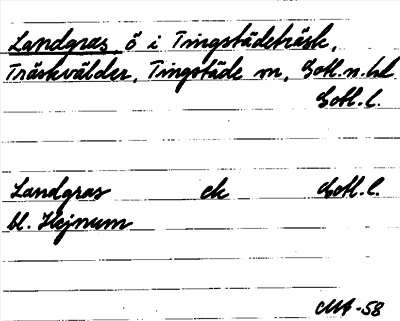 Landgras, ö i Tingstädeträsk,
Träskvälder, Tingstäde sn, Gotl. n. hd
Gotl. l.
Landgras ek Gotl. l.
bl. Hejnum
MA-58